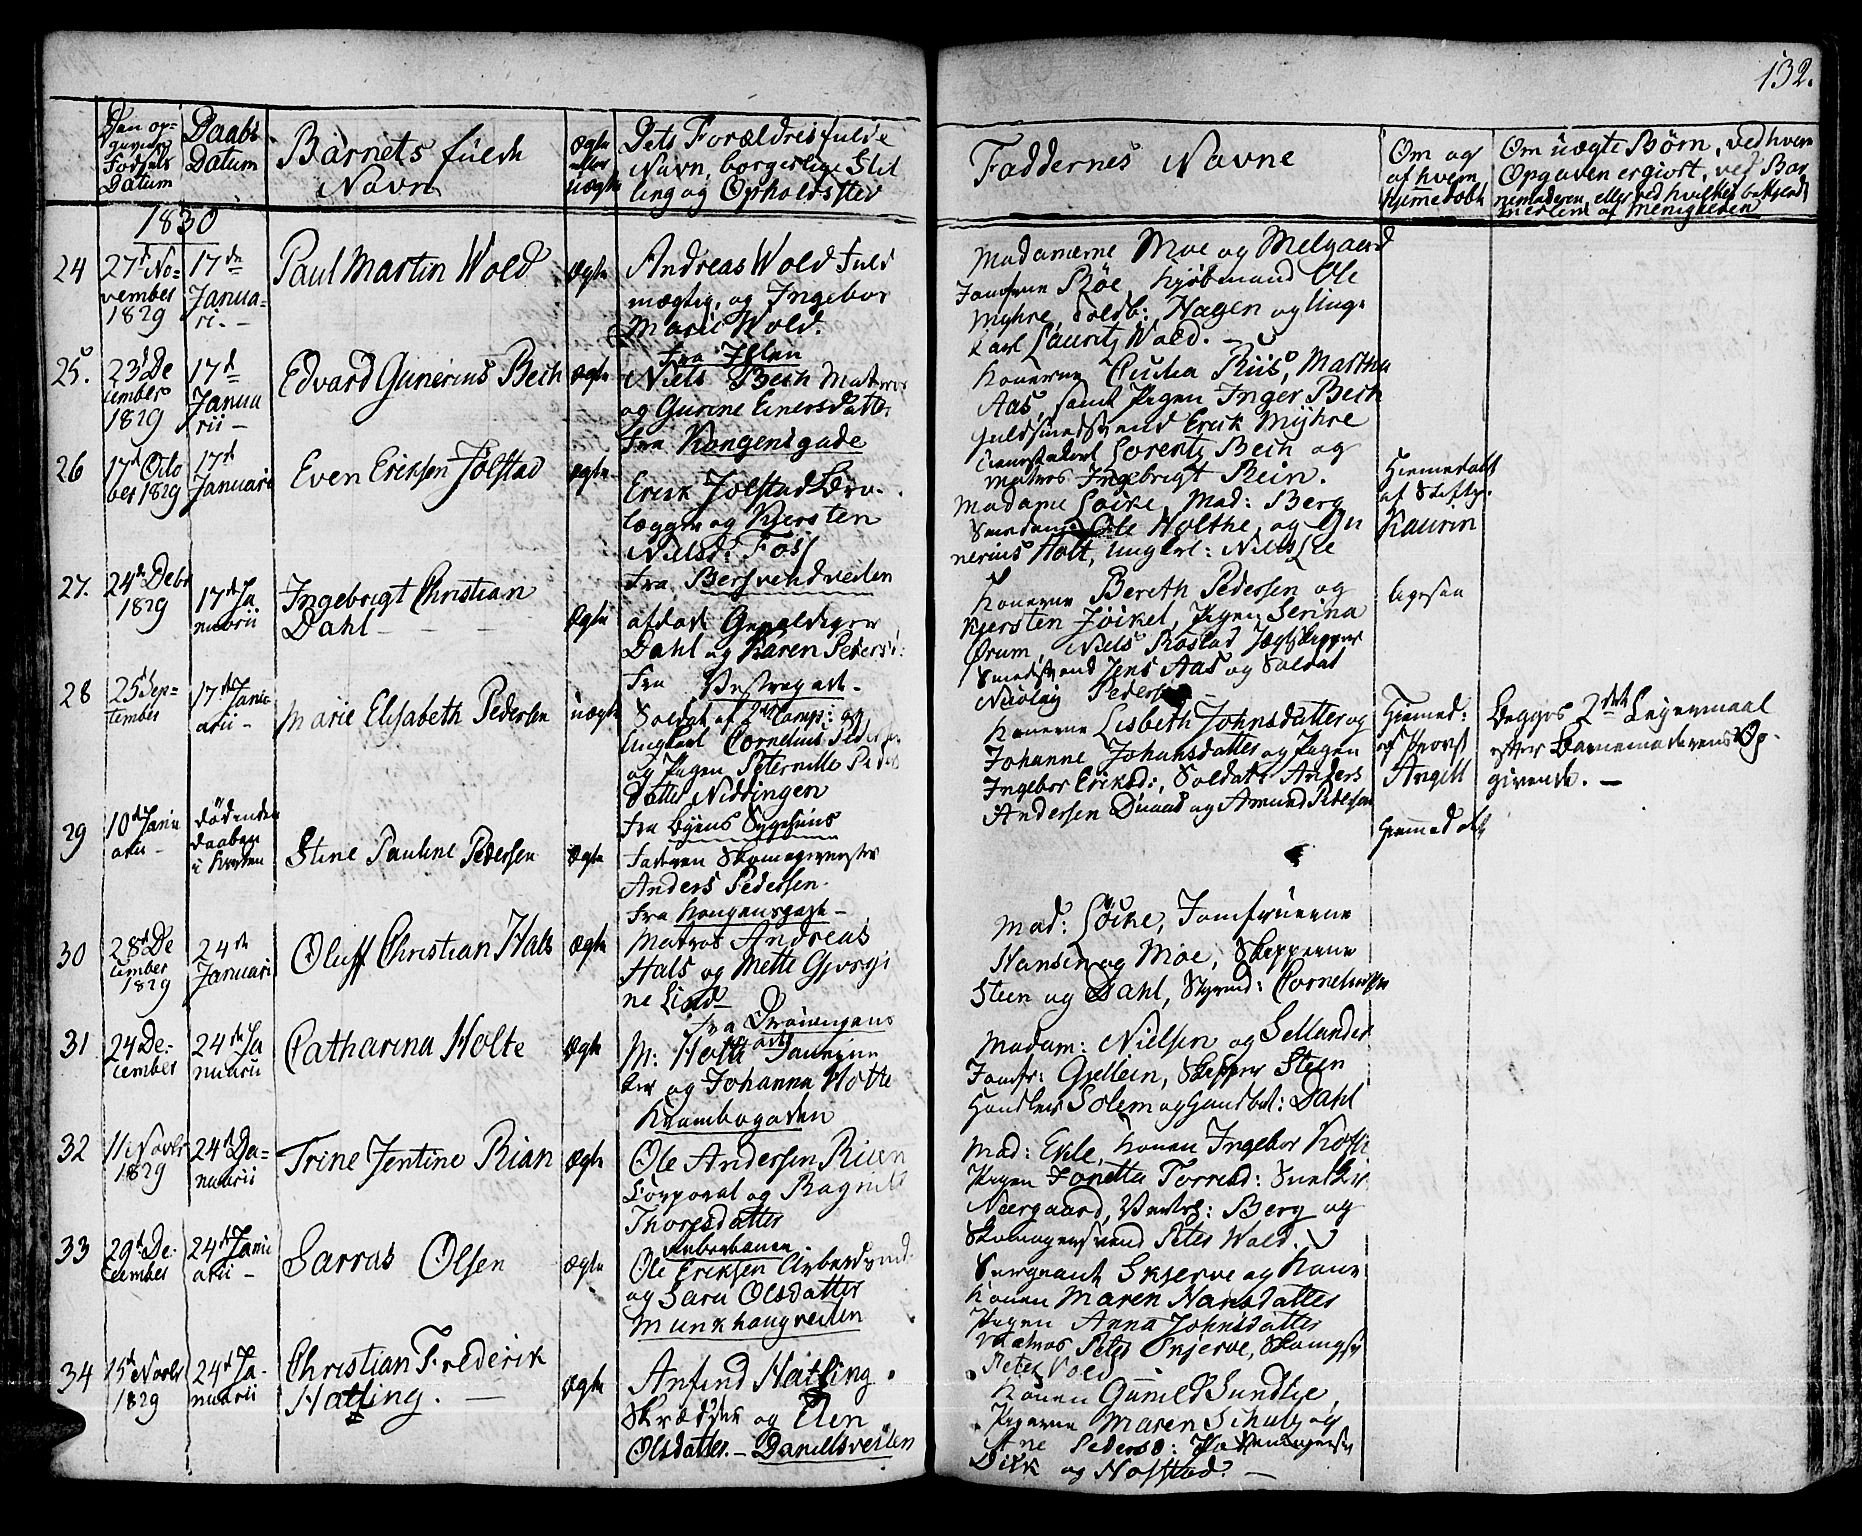 132.
Den op-
givne
Fødsels
Datum
Daabs
Datum
Barnets fulde
Navn
Ægte
eller
uægte
Dets Forældres fulde
Navn, borgerlige Stil
ling og Opholdssted
Faddernes Navne
Om og
af hvem
hjemmedøbt
Om uægte Børn, ved hvem
Opgaven er giort, ved Bar
nemoderen eller ved hvilket bekjendt
medlem af Menigheden
1830
24
27d No-
vember
1829
17de
Janua-
ri. -
Paul Martin Wold
Ægte
Andreas Wold Fuld
mægtig, og Ingebor
Marie Wold.
fra Ihlen
Madamerne Moe og Melgaard
Jomfrue Röe, Kjøbmand Ole
Myhre, Hagen og Unge
karl Lauritz Wold. -
25.
23d De
cember
1829
17d
Janua
rii -
Edvard Gunerius Bech
Ægte
Niels Bech Matros
og Gurine Einersdatter
fra Kongensgade
Konerne Cecilia Riis, Martha
Aas, samt Pigen Inger Bech
Guldsmedsvend Erik Myhre
Lorentz Bech og
Matros Ingebrigt Rein.
26
17d Octo
ber 1829
17d
Januari
Even Eriksen Jolstad
Ægte
Erik Jolstad Bro-
lægger og Kjersten
Nielsd: Foss
fra Bersvendveiten
Madame Löcke, Mad: Berg
Ole Holthe, og Gu
nerius Holt, Ungkarl: Niels Lie
Hiemedøbt
af Stiftsp.
Kaurin
27.
24d Debr
1829
17d Ja
nuarii
Ingebrigt Christian
Dahl - - -
Ægte
afdøde Gevaldiger
Dahl og Karen Peders:
fra Vestregade -
Konerne Bereth Pedersen og
Kjersten Jöikel, Pigen Serina
Ørum, Niels Rostad Jægtskipper
Smedsvend Jens Aas og Soldat
Nicolay Pedersen
ligesaa
28
25d Sep-
tember
17d Janu-
arii -
Marie Elisabeth Pedersen
uægte
Soldat af 2det Comp: og
Ungkarl Cornelius Pedersen
og Pigen Peternille Peders
datter Nidringen
fra Byens Sygehuus
Konerne Lisbeth Johnsdatter og
Johanne Johansdatter og Pigen
Ingebor Eriksd:, Soldat Anders
Andersen Duaas og Amund Pedersen
Hiemed:
af Provst
Angell
Begges 2det Leiermaal
efter Barnemoderens Op-
givende. -
29
10d Janu
arii -
død enden
daaben
i kirken
Stine Pauline Pedersen
Ægte
Faderen Skomagermester
Anders Pedersen.
fra Kongensgade -
Hiemmed øbt
30
28d De
cember
1829
24de
Januari
Oluff Christian Hals
Ægte
Matros Andreas
Hals og Mette Gjorgi
ne Lind
fra Dronningens
Mad: Löcke, Jomfruerne
Hansen og Moe, Skipperne
Steen og Dahl, Styrmd: Cornelinssen
31
24 De-
cember
24de Ja
nuarii
Catharina Holte
Ægte
M: Holte
og Johanna Holte
Krambogaden
Madam: Nielsen og Sellander
Jomfr: Gjellein, Skipper Steen
Handler Solem og Handbet: Dahl
32
11 Novbr
1829
24d Ja-
nuarii
Trine Jentine Rian
Ægte
Ole Andersen Rien
Corporal og Ragnild
Thoresdatter
Mad: Ekle, Konen Ingebor Koss
Pigen Jonetta Torresd:
Neergaard, Berg og
Skomagersvend Peter Wold.
33
29d De-
cember
24d Janu
arii -
Sarras Olsen
Ægte
Ole Eriksen Arbeidsmd.
og Sara Olsdatter
Munkhaugveiten
Sergeant Skjerve og Kone
Konen Maren Hansdatter
Pigen Anna Johnsdatter
Matros Peter Snjerve, Skomgsv
Peter Vold
34
15d Novbr
1829
24d Ja-
nuarii
Christian Frederik
Hatling. -
Ægte
Anfind Hatling.
Skrædder og Elen
Olsdatter. - Danielsveiten
Konen Gunild Sundlie,
Pigerne Maren Schultz og
Ane Pedersd:
Dirk og Hofstad. -